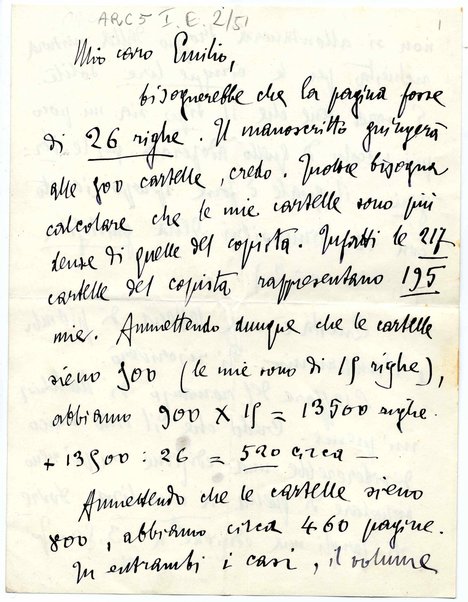 ARC 5 I. E. 2/51
1
Mio caro Emilio,
bisognerebbe che la pagina fosse
di 26 righe. Il manoscritto giungerà
alle 900 cartelle, credo. Inoltre bisogna
calcolare che le mie cartelle sono più
dense di quelle del copista. Infatti le 217
cartelle del copista rappresentano 195
mie. Ammettendo dunque che le cartelle
sieno 900 (le mie sono di 15 righe),
abbiamo 900 X 15 = 13500 righe.
+ 13500 : 26 = 520 circa —
Ammettendo che le cartelle sieno
800, abbiamo circa 460 pagine.
In entrambi i casi, il volume